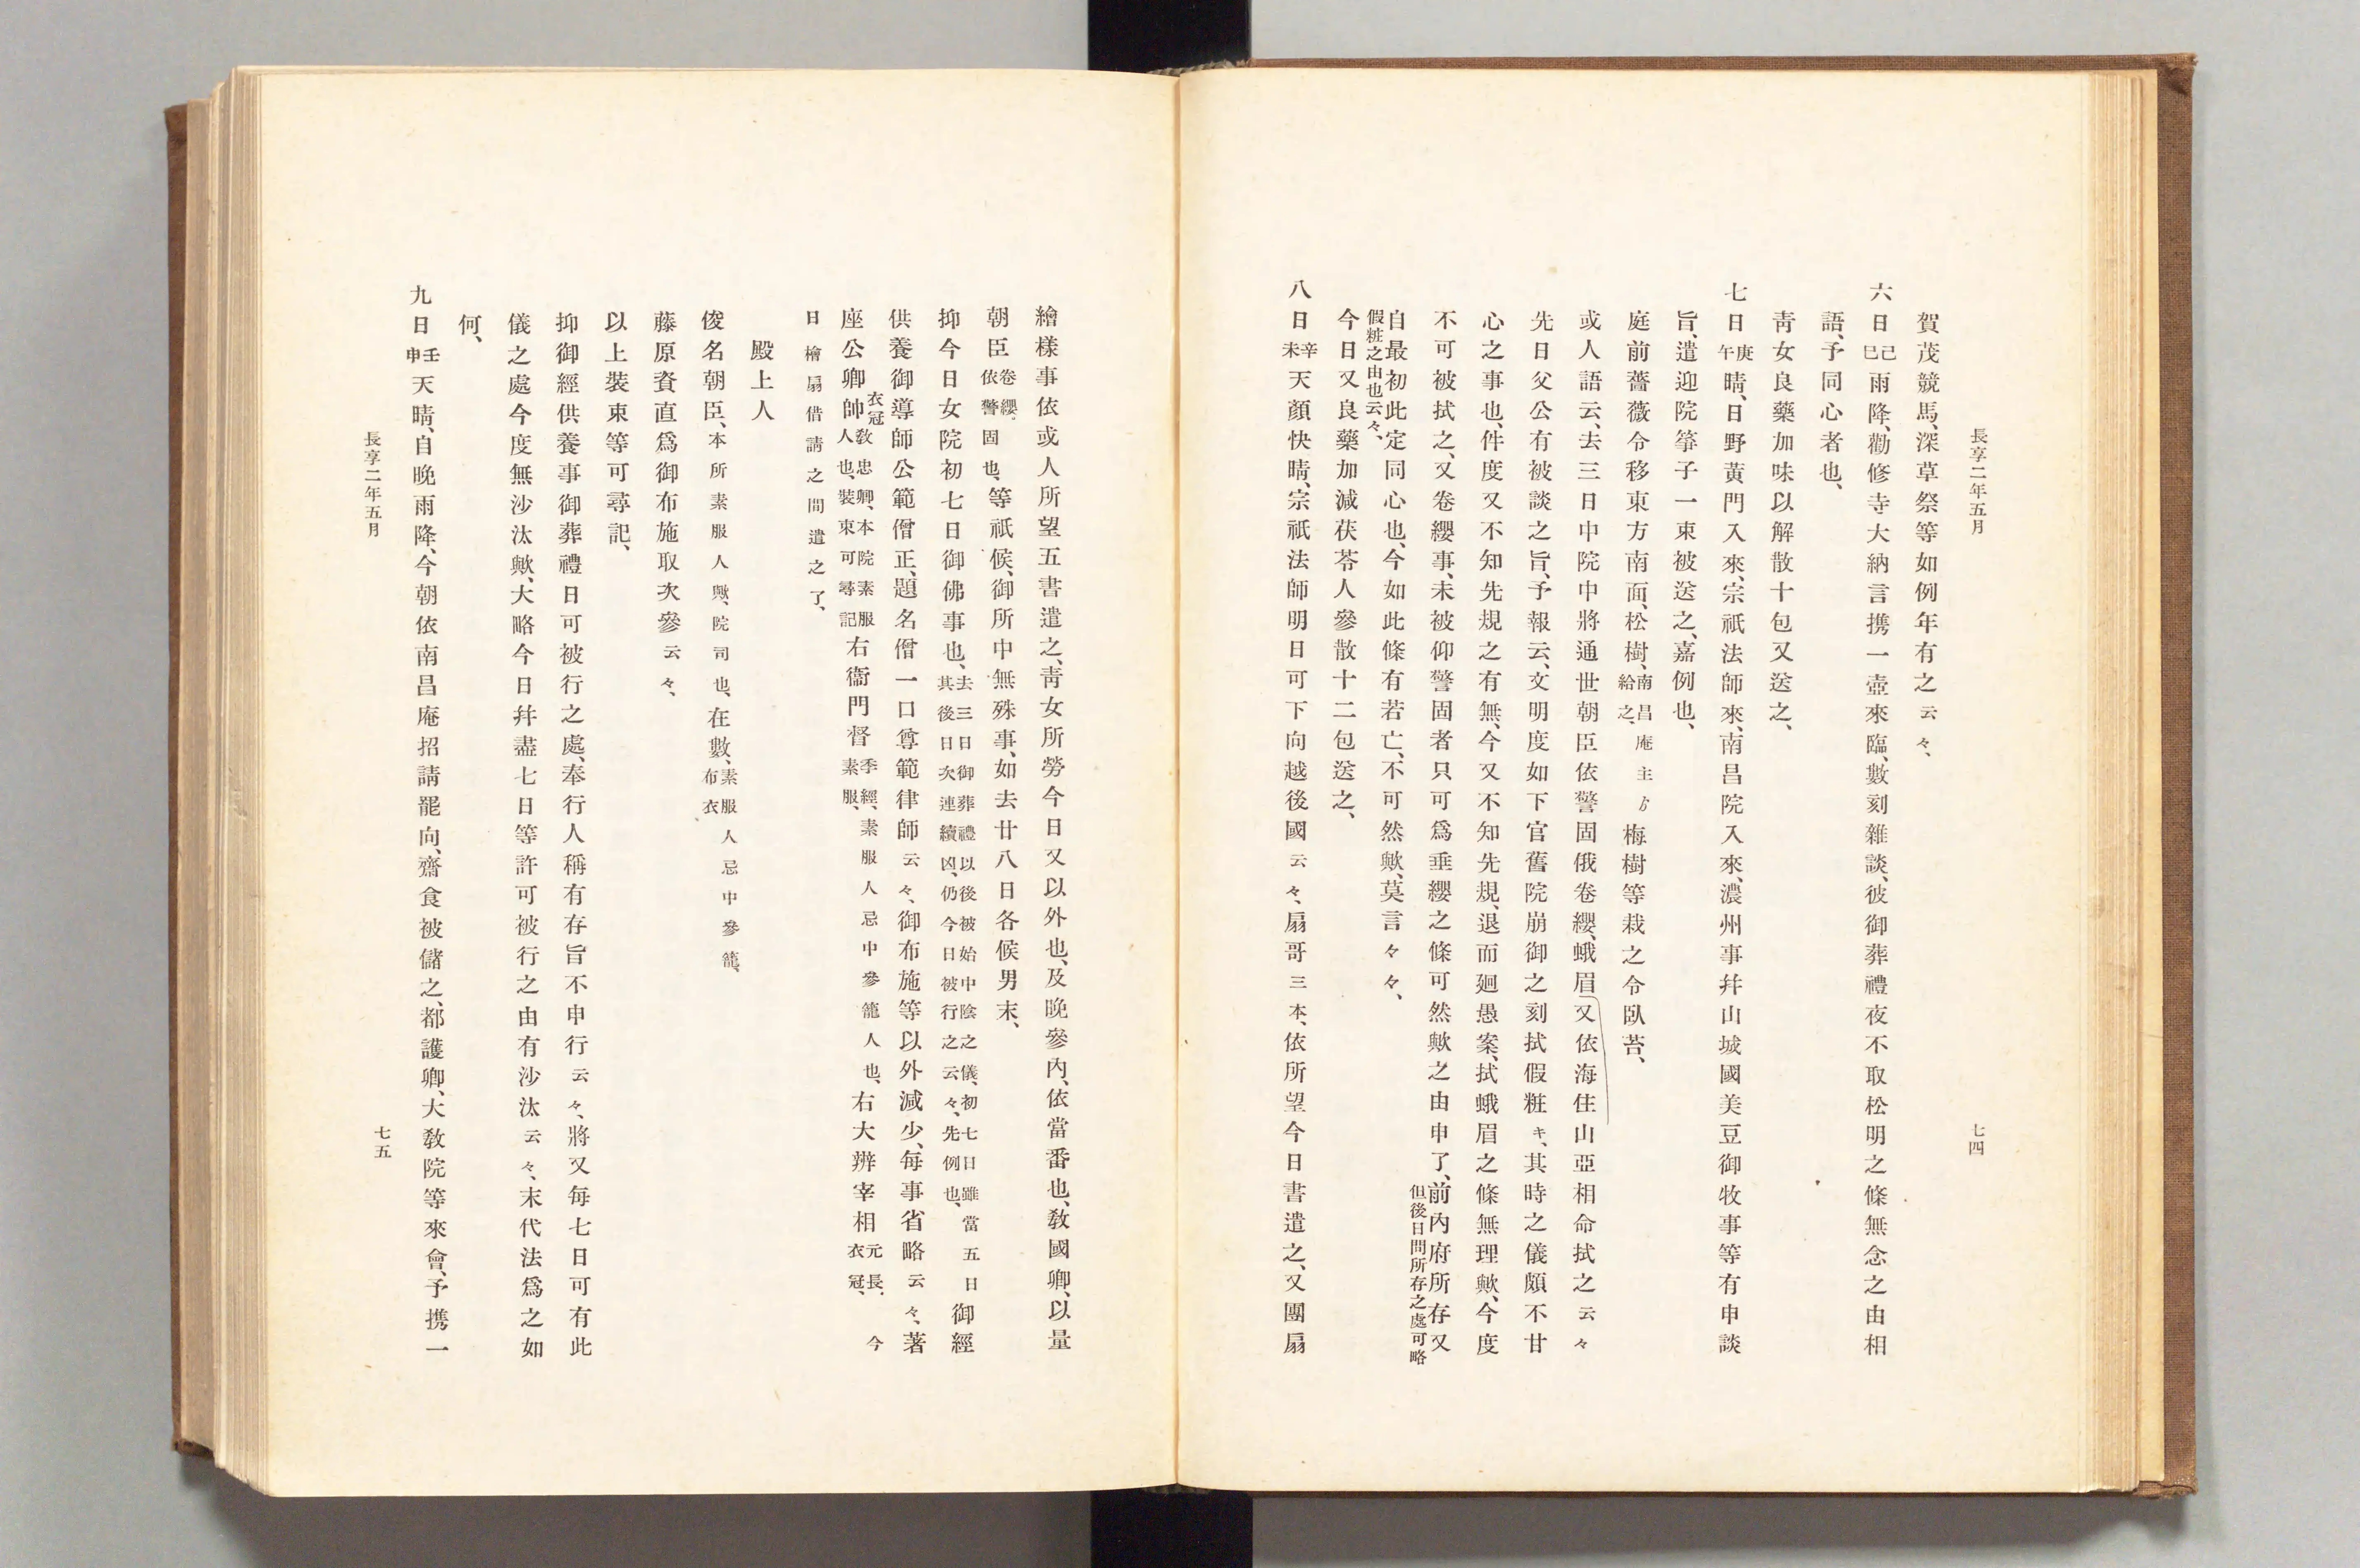 長享二年五月
七四
賀茂競馬、深草祭等如例年有之云々、
六日己巳雨降、勸修寺大納言携一壺來臨、數刻雜談、彼御葬禮夜不取松明之條無念之由相
語、予同心者也、
靑女良藥加味以解散十包又送之、
七日庚午晴、日野黃門入來、宗祇法師來、南昌院入來、濃州事幷山城國美豆御牧事等有申談
旨、遣迎院筝子一束被送之、嘉例也、
庭前薔薇令移東方南面、松樹、南昌庵主ゟ給之、梅樹等栽之令臥苔、
或人語云、去三日中院中將通世朝臣依警固俄卷纓、蛾眉又依海住山亞相命拭之云々
先日父公有被談之旨、予報云、文明度如下官舊院崩御之刻拭假粧キ、其時之儀頗不甘
心之事也、件度又不知先規之有無、今又不知先規、退而廻愚案、拭蛾眉之條無理歟、今度
不可被拭之、又卷纓事、未被仰警固者只可爲垂纓之條可然歟之由申了、前內府所存又
但後日問所存之處可略
自最初此定同心也、今如此條有若亡、不可然歟、莫言々々、
假粧之由也云々、
今日又良藥加減茯苓人參散十二包送之、
八日辛未天顏快晴、宗祇法師明日可下向越後國云々、扇哥三本、依所望今日書遣之、又團扇
繪樣事依或人所望五書遣之、靑女所勞今日又以外也、及晚參內、依當番也、敎國卿、以量
朝臣卷纓、依警固也、等祇候、御所中無殊事、如去廿八日各候男末、
抑今日女院初七日御佛事也、去三日御葬禮以後被始中陰之儀、初七日雖當五日其後日次連續凶、仍今日被行之云々、先例也、御經
供養御導師公範僧正、題名僧一口尊範律師云々、御布施等以外減少、每事省略云々、著
座公卿帥衣冠敎忠卿、本院素服人也、裝束可尋記右衞門督季經、素服、素服人忌中參籠人也、右大辨宰相元長、衣冠、今
日檜扇借請之間遣之了、
殿上人
俊名朝臣、本所素服人歟、院司也、在數、素服人忌中參籠、布衣
藤原資直爲御布施取次參云々、
以上裝束等可尋記、
抑御經供養事御葬禮日可被行之處、奉行人稱有存旨不申行云々、將又每七日可有此
儀之處今度無沙汰歟、大略今日幷盡七日等許可被行之由有沙汰云々、末代法爲之如
何、
九日壬申天晴、自晚雨降、今朝依南昌庵招請罷向、齋食被儲之、都護卿、大敎院等來會、予携一
長享二年五月
七五